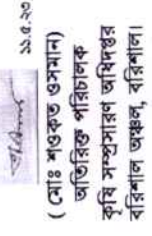 ১৯.৫.২০
( মোঃ শওকত ওসমান)
অতিরিক্ত পরিচালক
কৃষি সম্প্রসারণ অধিদপ্তর
বরিশাল অঞ্চল, বরিশাল।